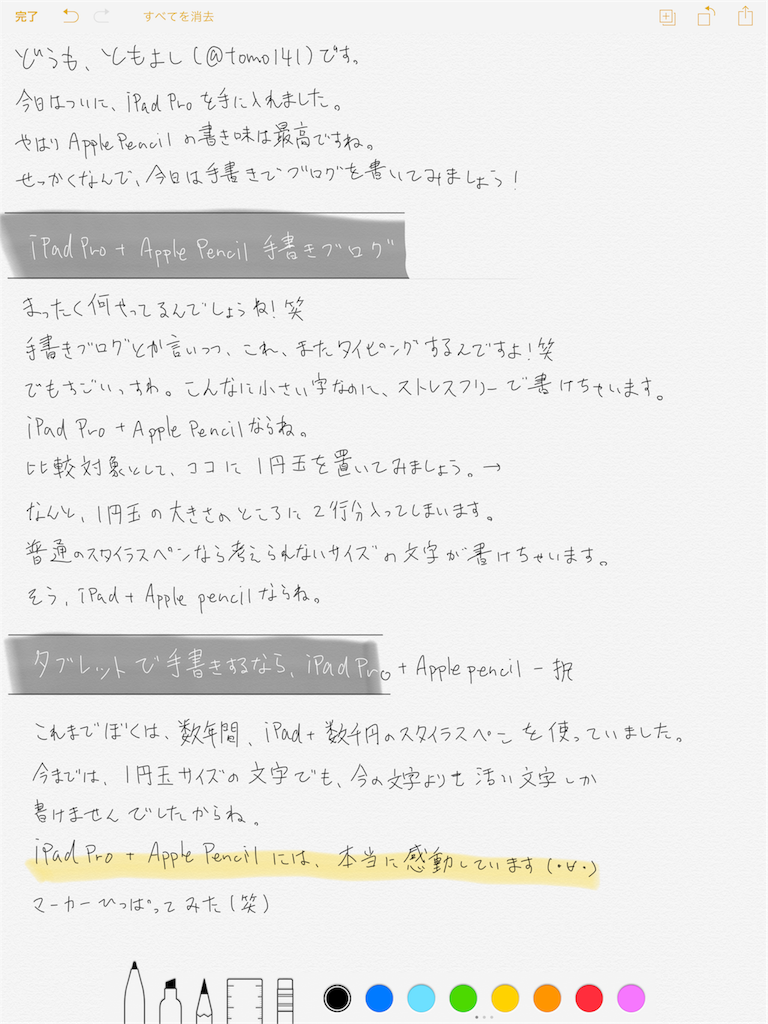 完了 すべてを消去
どうも、ともよし(@tomo141)です。
今日はついに、iPad Proを手に入れました。
やはりApple Pencilの書き味は最高ですね。
せっかくなんで、今日は手書きでブログを書いてみましょう!
iPad Pro + Apple Pencil 手書きブログ
まったく何やってるんでしょうね!笑
手書きブログとか言いつつ、これ、またタイピングするんですよ!笑
でもすごいっすわ。こんなに小さい字なのに、ストレスフリーで書けちゃいます。
iPad Pro + Apple Pencilならね。
比較対象として、ココに1円玉を置いてみましょう。→
なんと、1円玉の大きさのところに2行分入ってしまいます。
普通のスタイラスペンなら考えられないサイズの文字が書けちゃいます。
そう、iPad + Apple pencilならね。
タブレットで手書きするなら、iPad Pro + Apple pencil一択
これまでぼくは、数年間、iPad+数千円のスタイラスペンを使っていました。
今までは、1円玉サイズの文字でも、今の文字よりも汚い文字しか
書けませんでしたからね。
iPad Pro + Apple Pencilには、本当に感動しています(・∀・)
マーカーひっぱってみた(笑)